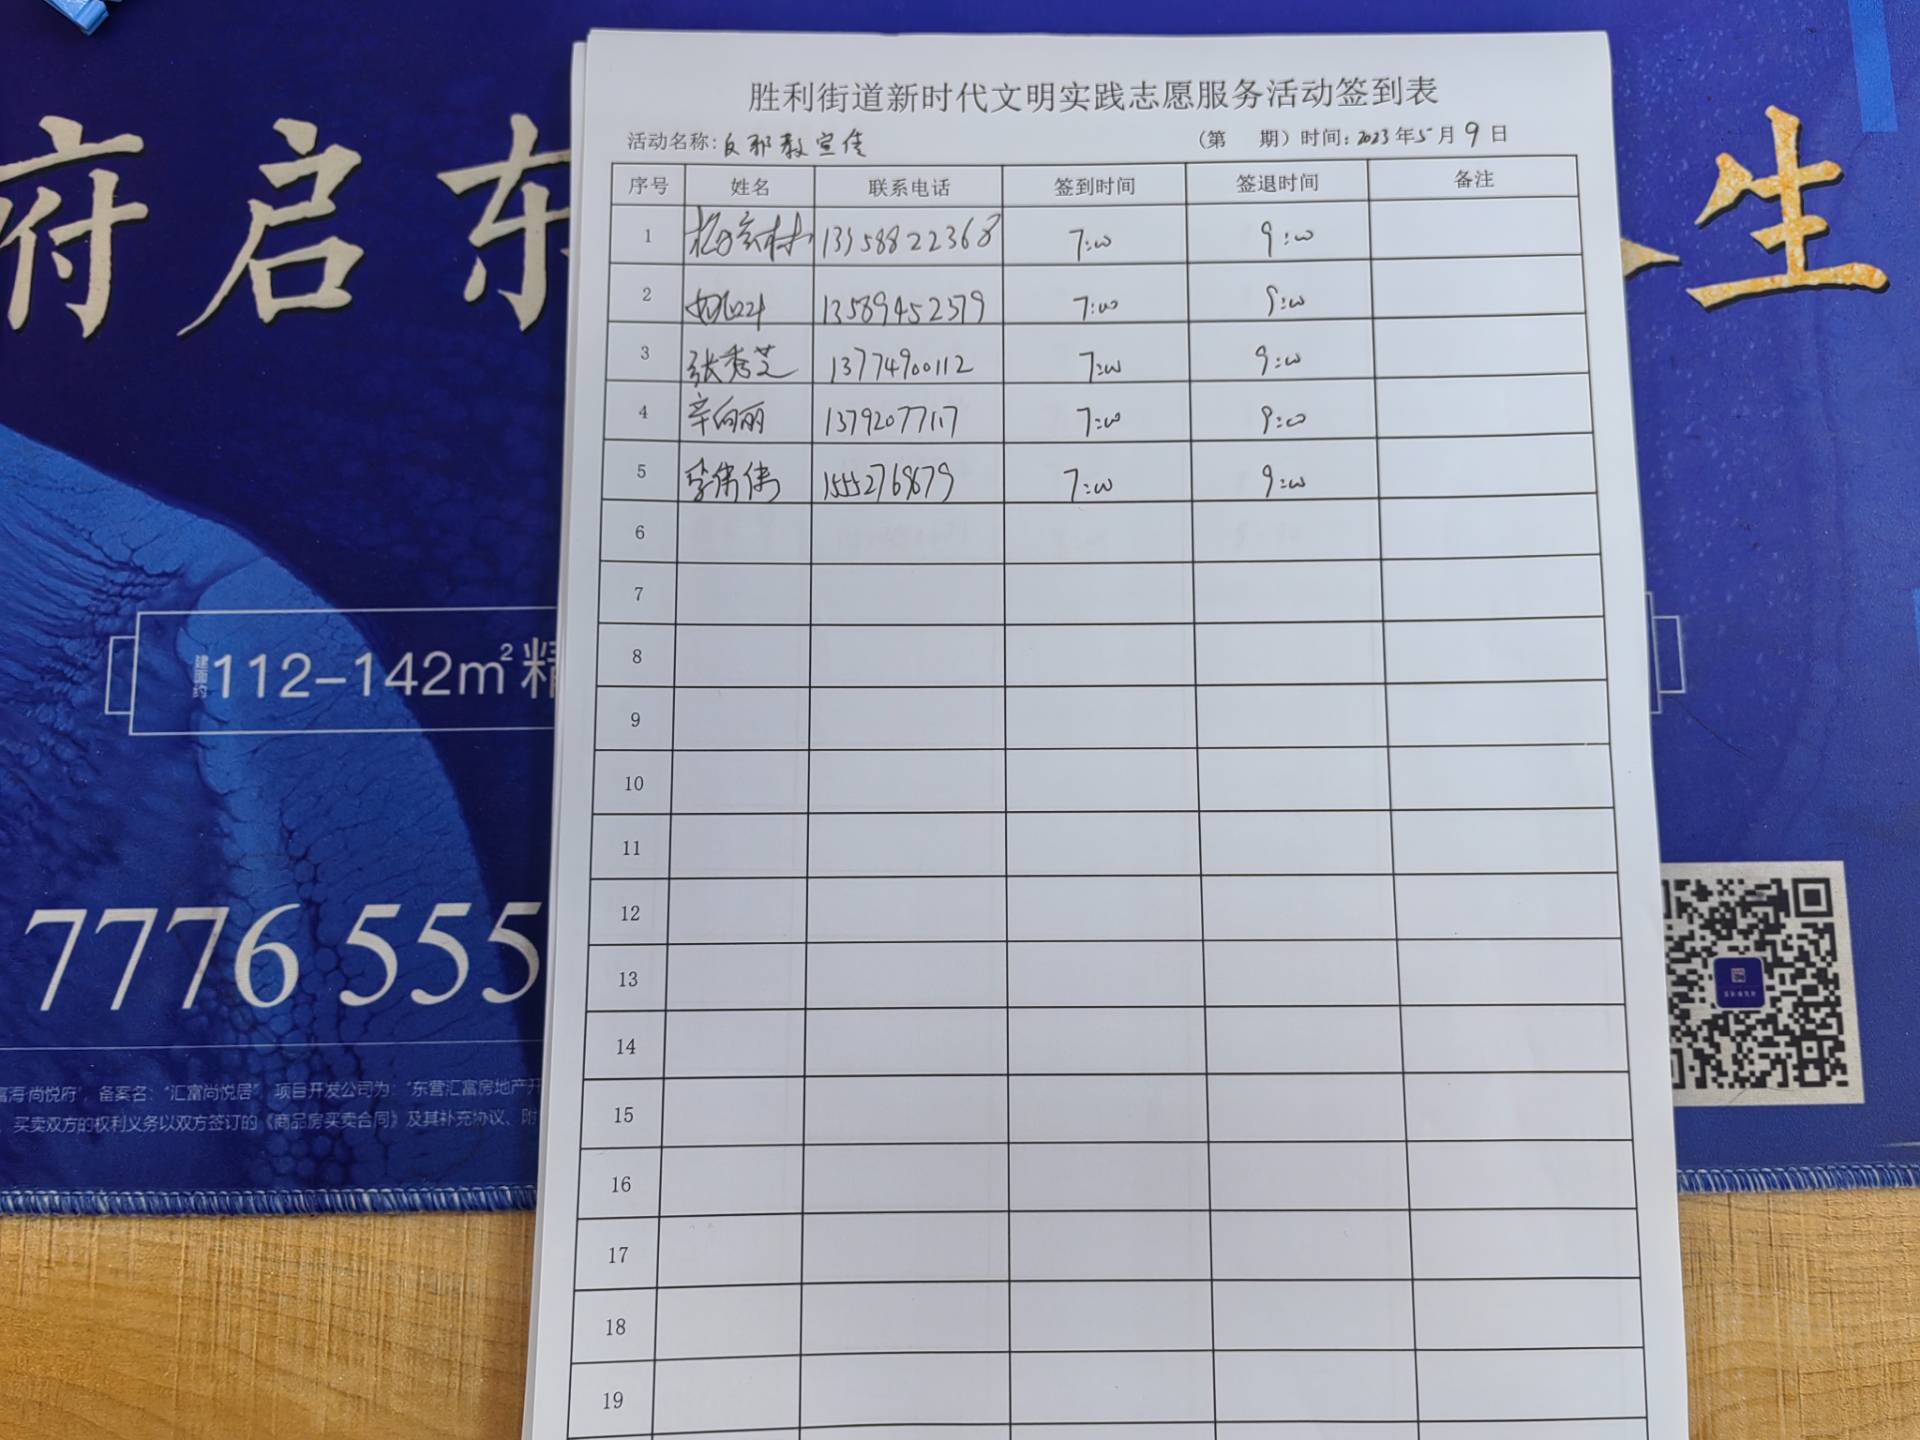 胜利街道新时代文明实践志愿服务活动签到表
活动名称:反邪教宣传 (第 期) 时间:2023年5月9日
序号 姓名 联系电话 签到时间 签退时间 备注
1 13358822368 7:00 9:00
2 13589452579 7:00 9:00
3 张秀芝 13774900112 7:00 9:00
4 辛向丽 13792077117 7:00 9:00
5 李伟伟 15552768679 7:00 9:00
6
7
8
9
10
11
12
13
14
15
16
17
18
19
府启东
生
建面约112-142m²精
7776 555
富海·尚悦府”,备案名:“汇富尚悦居”,项目开发公司为:“东营汇富房地产开
买卖双方的权利义务以双方签订的《商品房买卖合同》及其补充协议、附